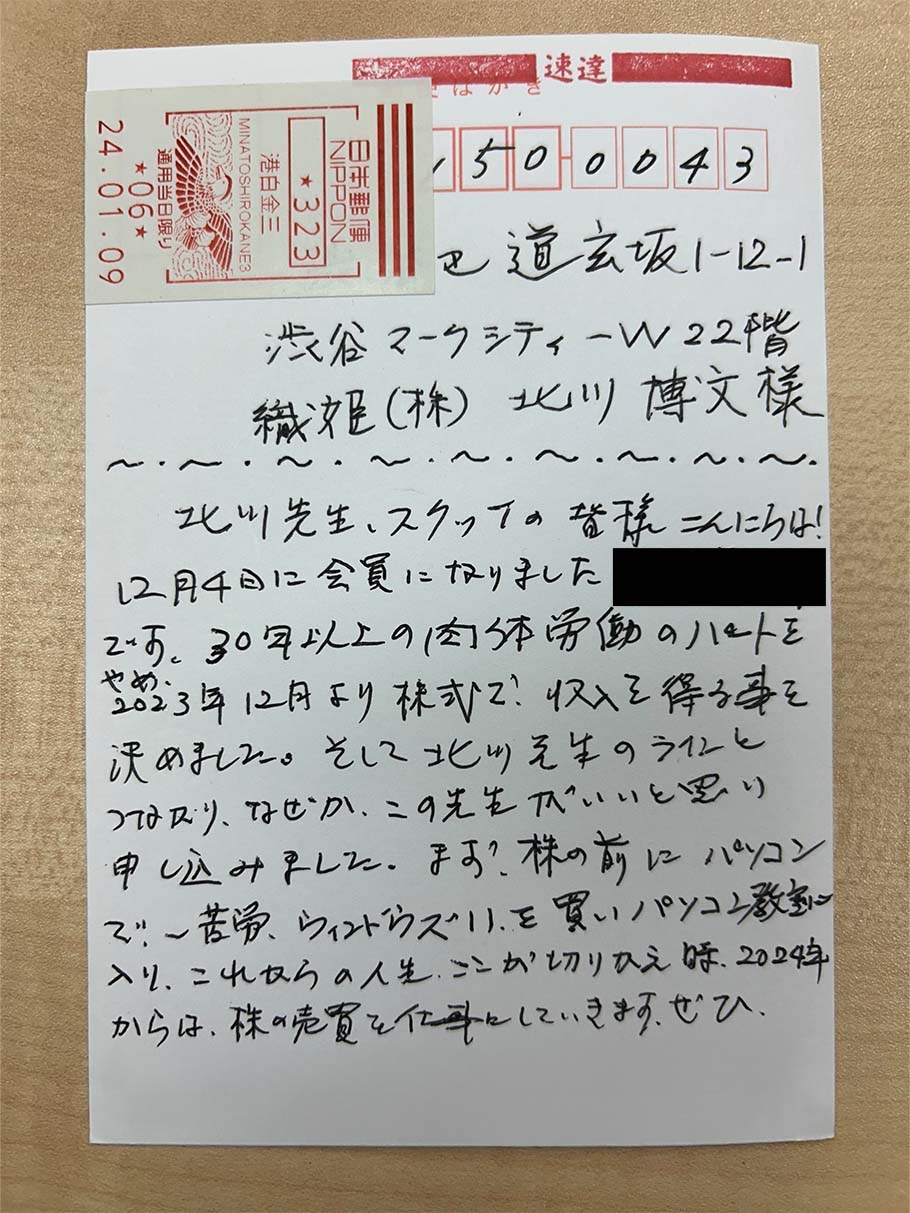 速達
はがき
日本郵便
NIPPON
*323
港白金三
MINATOSHIROKANE3
通用当日限り
*06*
24.01.09
150-0043
道玄坂1-12-1
渋谷マークシティーW22階
織姫(株) 北川 博文様
北川先生、スタッフの皆様こんにちは!
12月4日に会員になりました
です。30年以上の肉体労働のパートを
やめ、
2023年12月より株式で収入を得る事を
決めました。そして北川先生のラインと
つながり、なぜか、この先生がいいと思い
申し込みました。まず、株の前にパソコン
で一苦労、ウィンドウズ11、を買いパソコン教室に
入り、これからの人生、ここが切りかえ時、2024年
からは、株の売買を仕事にしていきます、ぜひ、